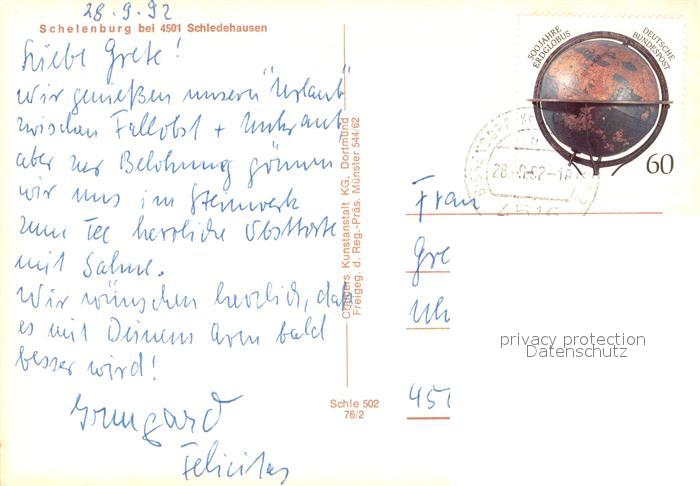 28.9.92
Schelenburg bei 4501 Schledehausen
Liebe Grete!
Wir genießen unseren "Urlaub"
zwischen Fallobst + Unkraut,
aber zur Belohnung gönnen
wir uns im Steinwerk
zum Tee herrliche Obsttorte
mit Sahne.
Wir wünschen herzlich, daß
es mit Deinem Arm bald
besser wird!
Irmgard
Felicitas
Cramers Kunstanstalt KG. Dortmund
Freigeg. d. Reg.-Präs. Münster 544/62
Schle 502
76/2
500 JAHRE
ERDGLOBUS
DEUTSCHE
BUNDESPOST
60
28.-9.92-1
4516
Frau
Gre
Uh
450
privacy protection
Datenschutz